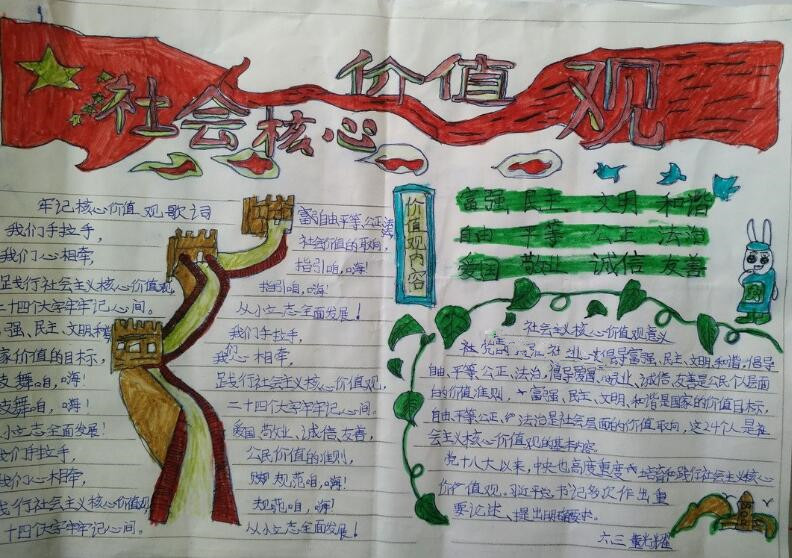 社会核心
价值观
牢记核心价值观歌词
我们手拉手,
我们心相牵,
践行社会主义核心价值观,
二十四个大字牢牢记心间。
强、民主、文明和谐
家价值的目标,
鼓舞咱,嗨!
鼓舞咱,嗨!
小立志全面发展!
我们手拉手,
我们心相牵,
践行社会主义核心价值观
二十四个大字牢牢记心间。
自由平等、公正法
社会价值的取向,
指引咱,嗨!
指引咱,嗨!
从小立志全面发展!
我们手拉手,
我们心相牵,
践行社会主义核心价值观,
二十四个大字牢牢记心间。
爱国、敬业、诚信、友善,
公民价值的准则,
规范咱,嗨!
规范咱,嗨!
从小立志全面发展!
价值观内容
富强 民主 文明 和谐
自由 平等 公正 法治
爱国 敬业 诚信 友善
社会主义核心价值观意义
倡导富强、民主、文明、和谐,倡导
自由、平等、公正、法治,倡导爱国、敬业、诚信、友善是公民个人层面
的价值准则,富强、民主、文明、和谐是国家的价值目标,
自由、平等、公正、法治是社会层面的价值取向,这24个人是社
会主义核心价值观的基本内容。
党十八大以来,中央也高度重度培育和践行社会主义核心
价值观,习近平总书记多次作出重
要论述、提出明确要求。
六三